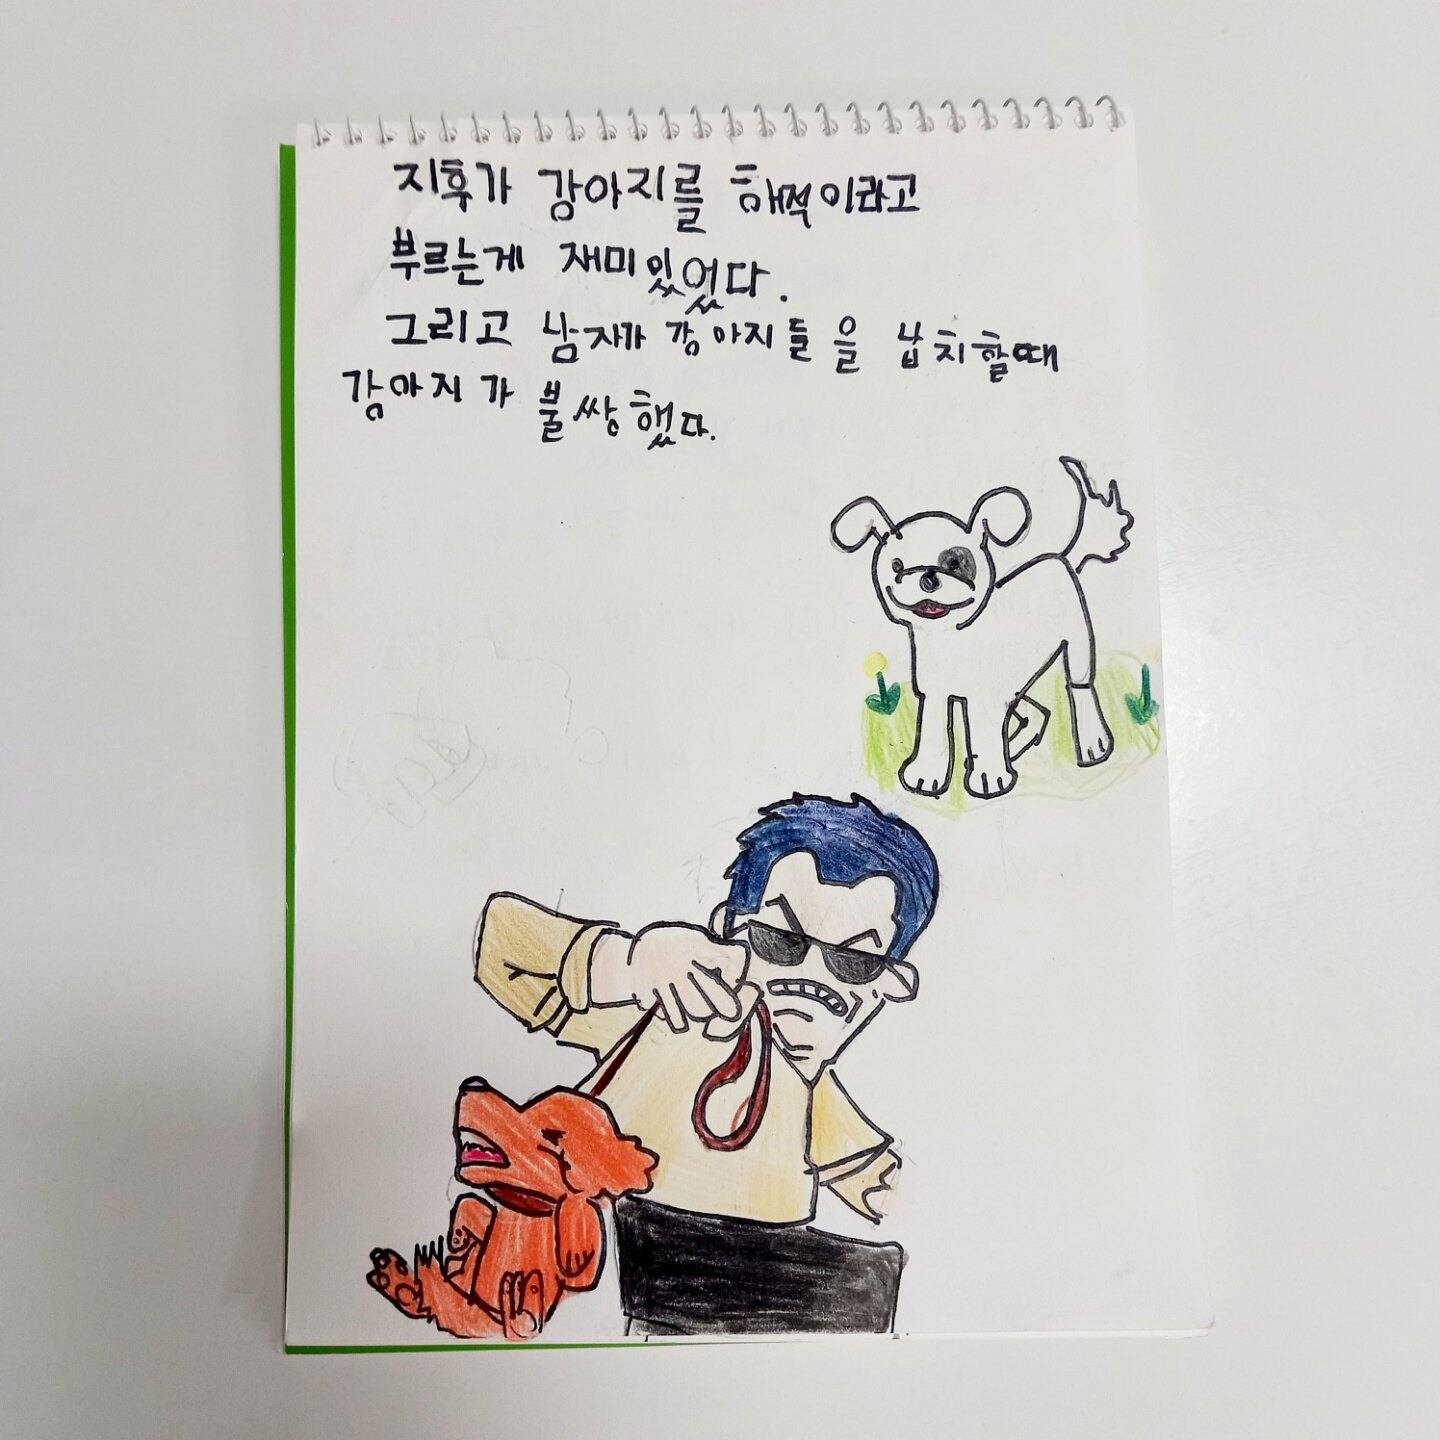 지후가 강아지를 해적이라고
부르는게 재미있었다.
그리고 남자가 강아지들을 납치할때
강아지가 불쌍했다.